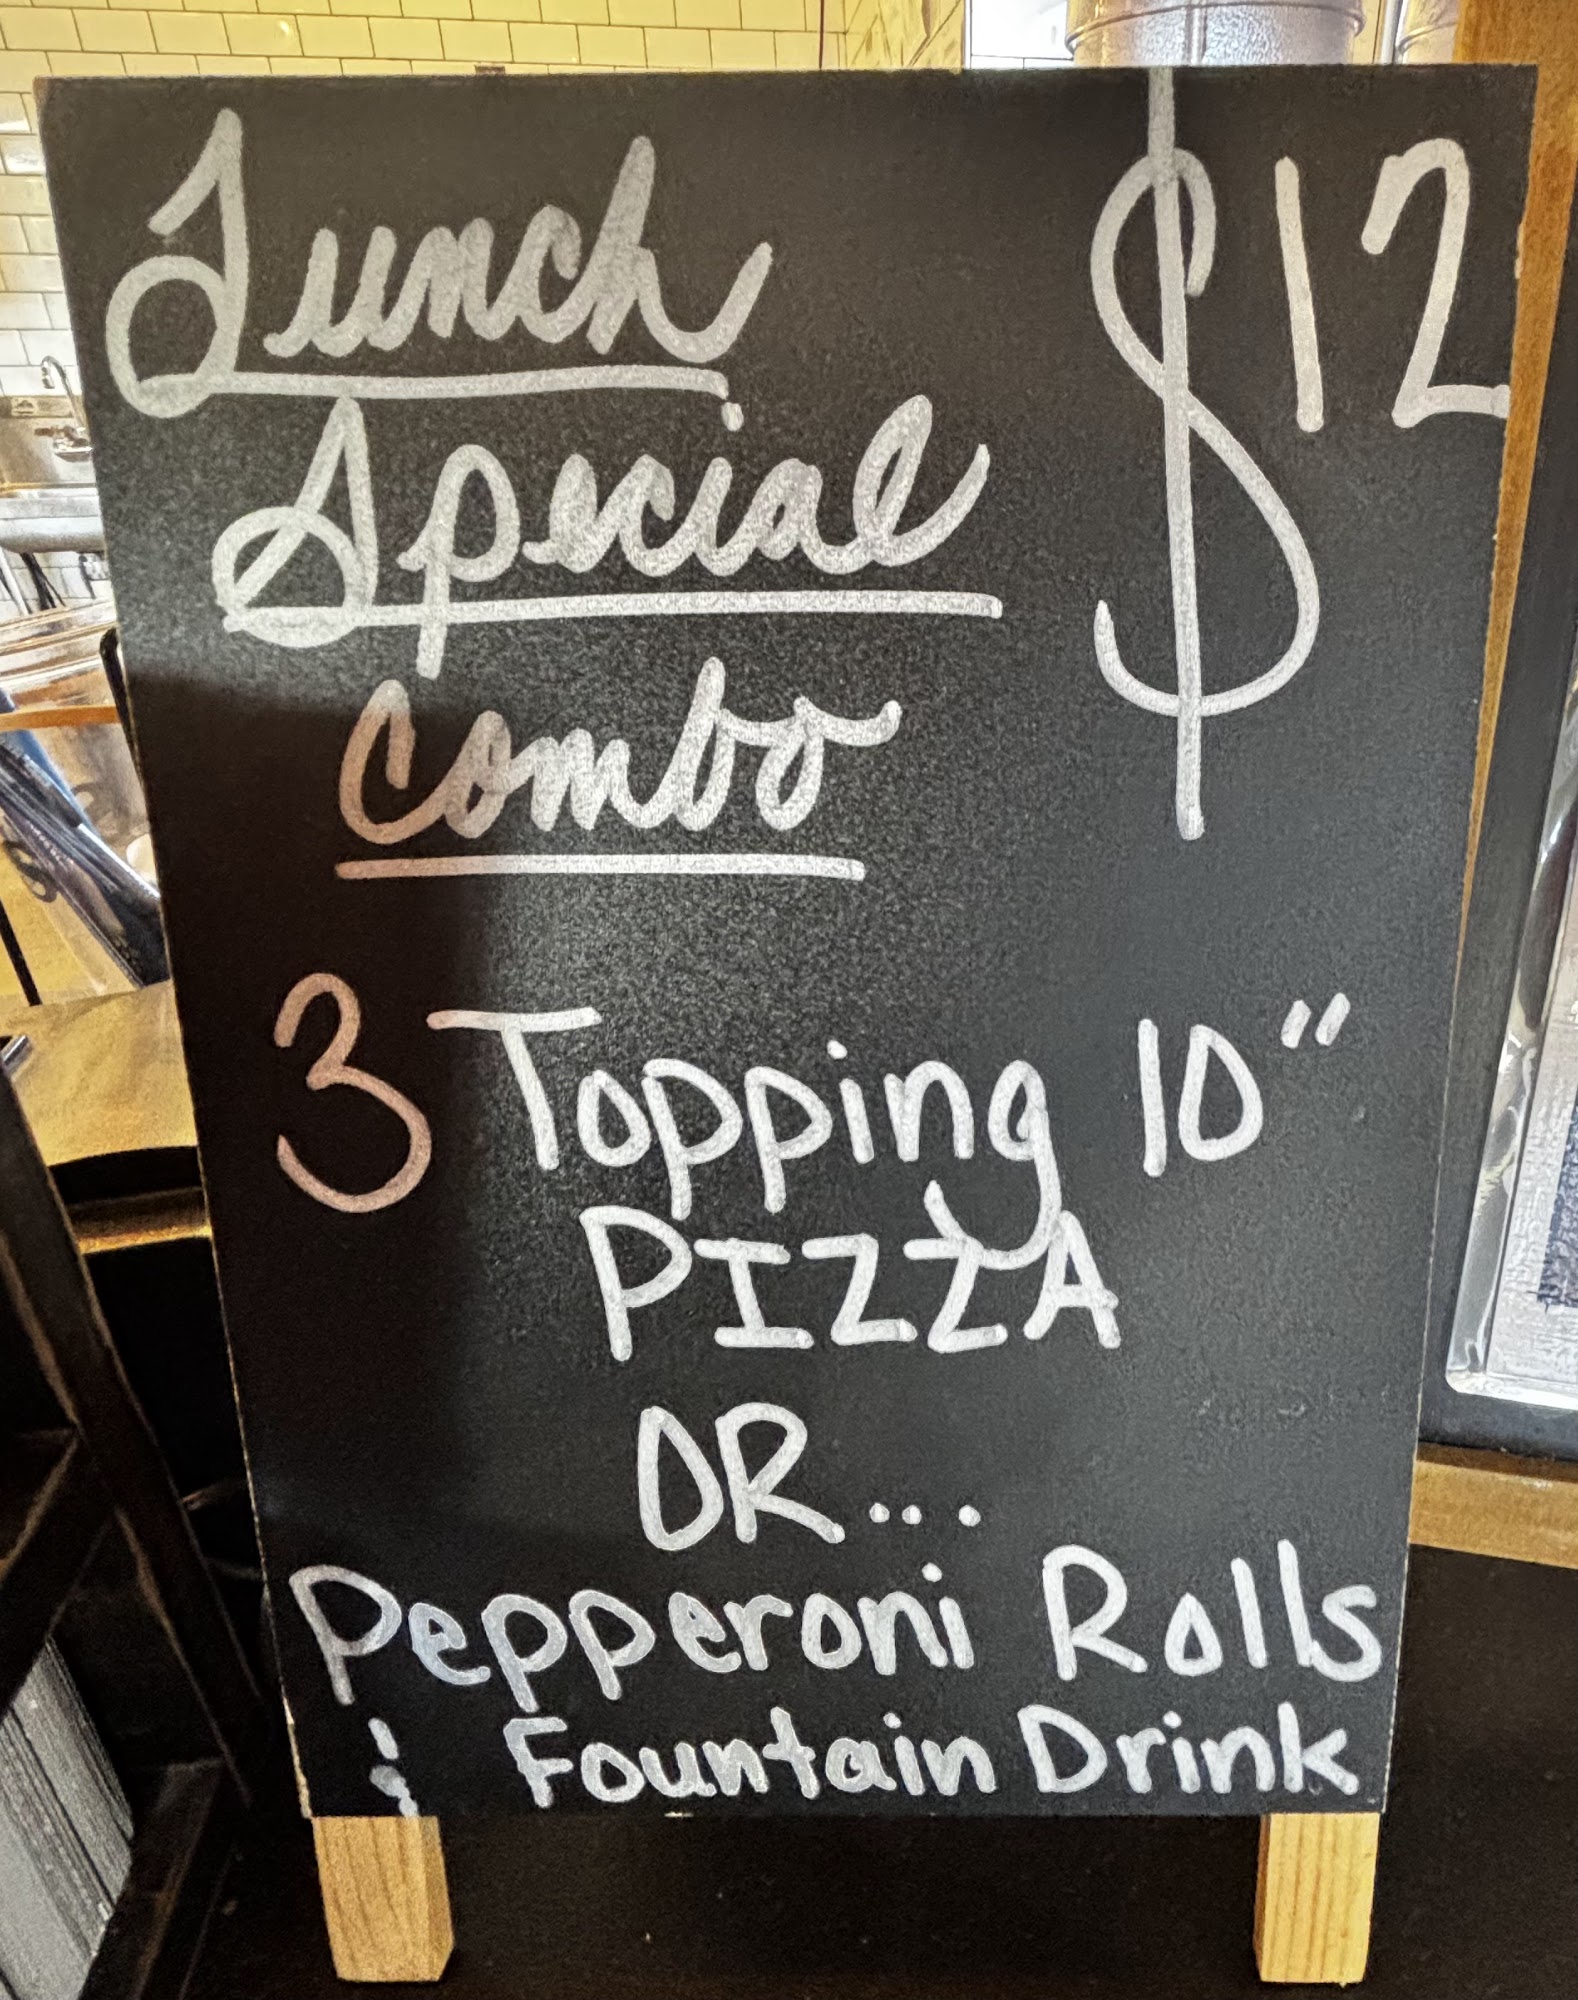 Lunch $12
Special
Combo
3 Topping 10"
PIZZA
OR...
Pepperoni Rolls
& Fountain Drink